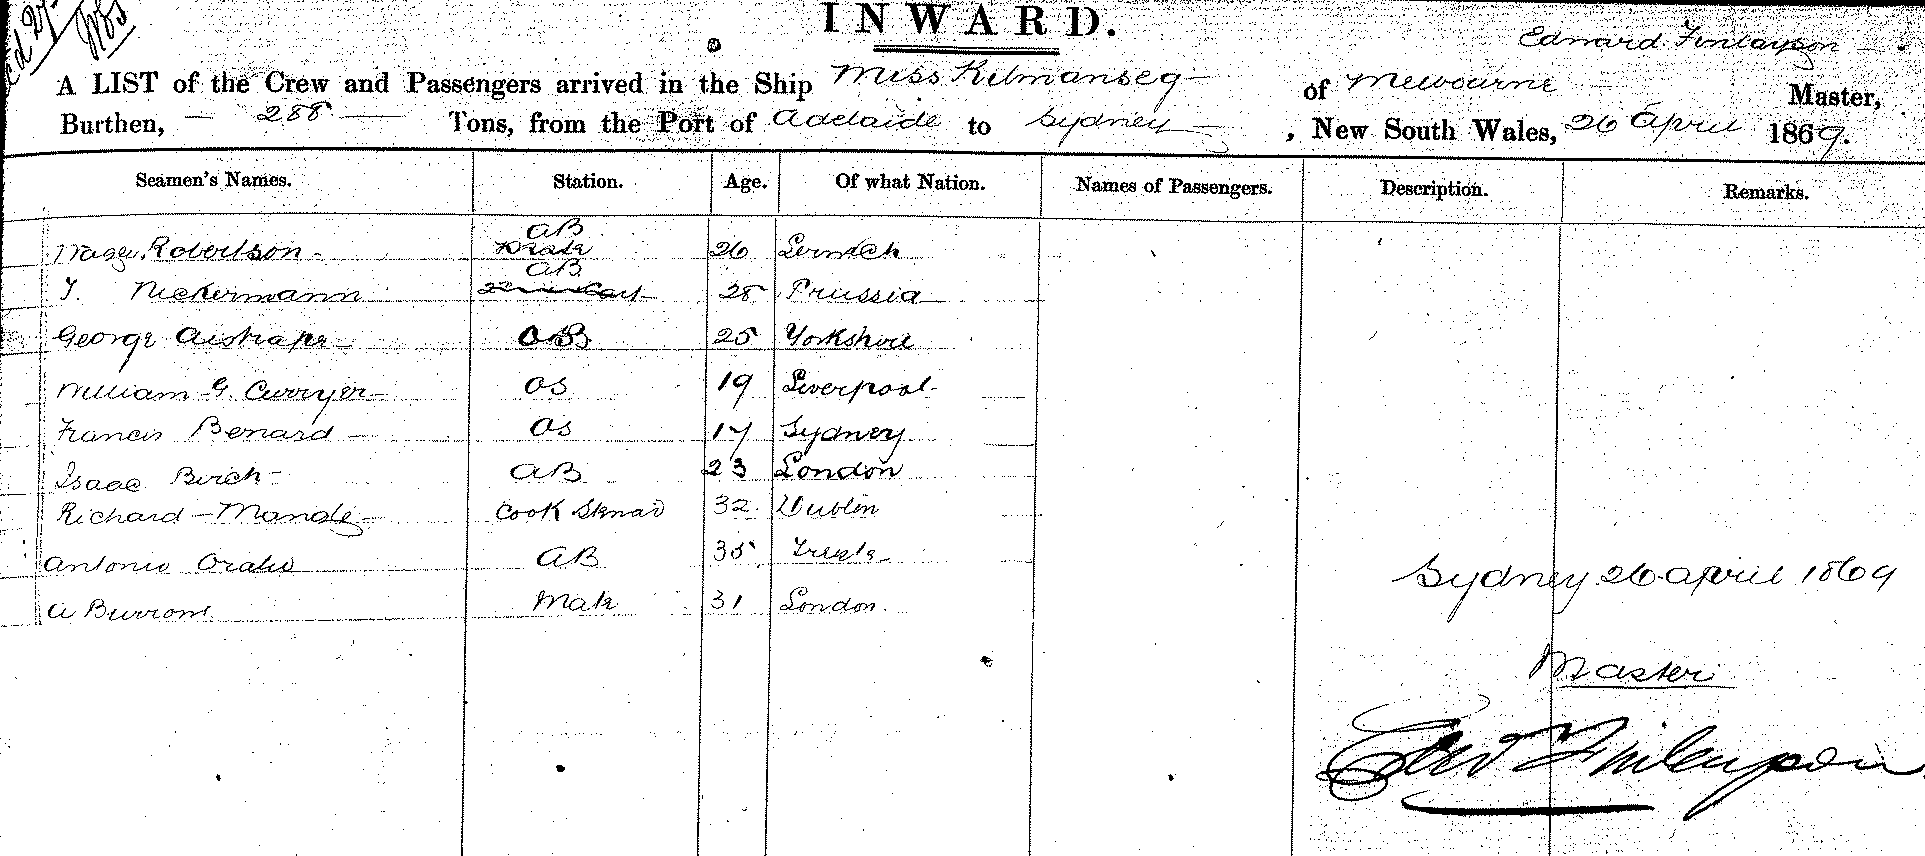 INWARD.
Edward Finlayson
A LIST of the Crew and Passengers arrived in the Ship Miss Kilmanseg of Melbourne Master,
Burthen, 288 Tons, from the Port of Adelaide to Sydney, New South Wales, 26 April 1869.
Seamen's Names. Station. Age. Of what Nation. Names of Passengers. Description. Remarks.
AB
Robertson 26 Lerwick
AB
Nickermann 28 Prussia
George AB 25 Yorkshire
William G. Curryer OS 19 Liverpool
Francis Benard OS 17 Sydney
Isaac Birch AB 23 London
Richard Mande Cook 32 Dublin
Antonio AB 35 Trieste
Sydney 26 April 1869
A Burrows Mate 31 London
Master
Edwd Finlayson